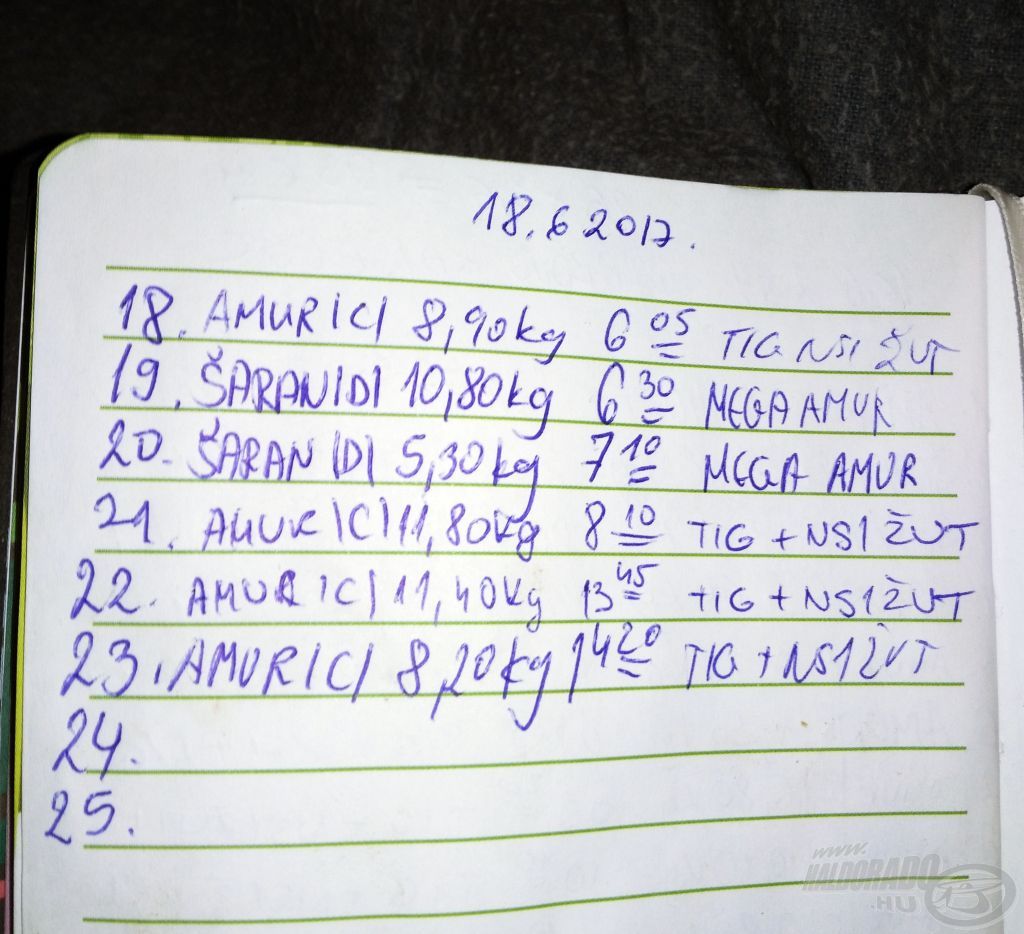 18.6 2017.
18. AMUR |C| 8,90kg 6 05 TIG NS1 ŽUT
19. ŠARAN |D| 10,80kg 6 30 MEGA AMUR
20. ŠARAN |D| 5,30kg 7 10 MEGA AMUR
21. AMUR |C| 11,80kg 8 10 TIG + NS1 ŽUT
22. AMUR |C| 11,40kg 13 45 TIG + NS1 ŽUT
23. AMUR |C| 8,20kg 14 20 TIG + NS1 ŽUT
24.
25.
www.
HALDORADO
.HU